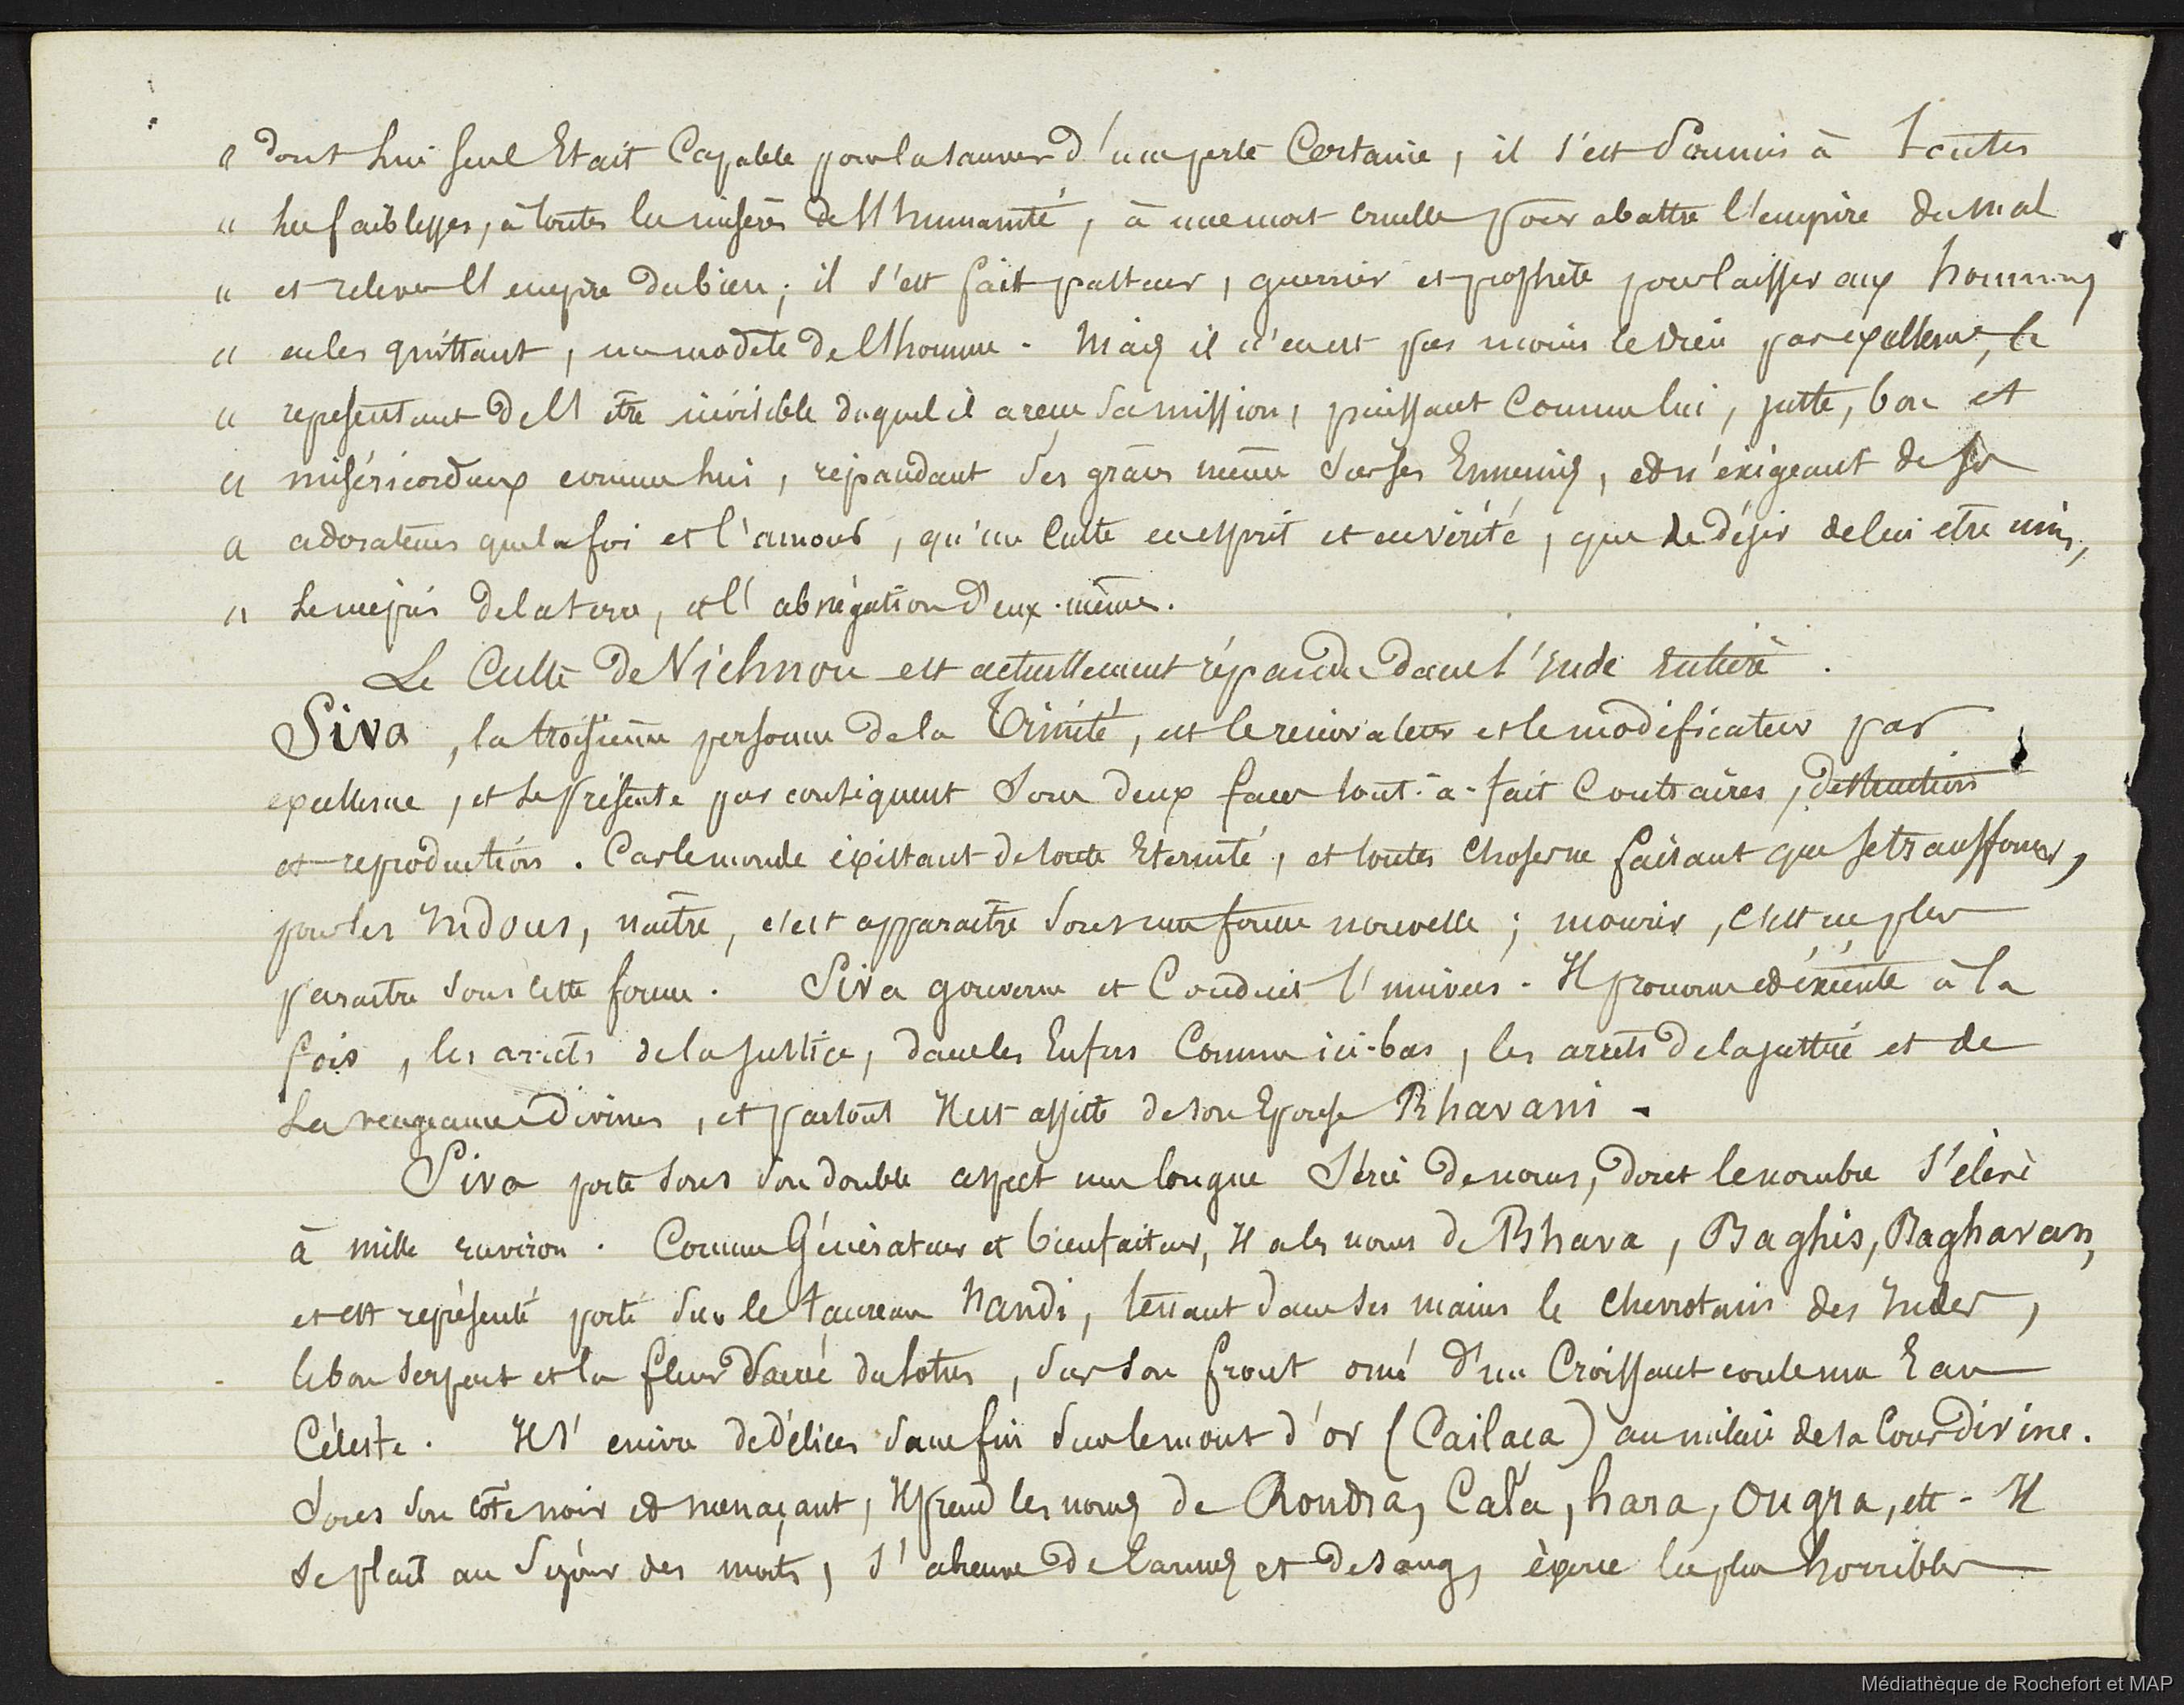 " dont lui seul Etait Capable pour la sauver d'une perte Certaine, il s'est Soumis à toutes
" les faiblesses, à toutes les misères de l'humanité, à une mort cruelle pour abattre l'empire du mal
" et relever l'empire du bien; il s'est fait pasteur, guerrier et prophète pour laisser aux hommes
" en les quittant, un modèle de l'homme. Mais il n'en est pas moins le Dieu par excellence, le
" représentant de l'être invisible duquel il a reçu sa mission, puissant Comme lui, juste, bon et
" miséricordieux comme lui, répandant ses grâces même sur ses Ennemis, et n'exigeant de ses
" adorateurs que la foi et l'amour, qu'un Culte en esprit et en vérité, que le désir de lui etre unis,
" le mépris de la terre, et l'abnégation d'eux-mêmes.
Le Culte de Vichnou est actuellement répandu dans l'Inde Entière.
Siva, la troisième personne de la Trinité, est le rénovateur et le modificateur par
excellence, et se présente par conséquent sous deux faces tout-à-fait Contraires, destruction
et reproduction. Car le monde existant de toute Eternité, et toutes choses ne faisant que se transformer,
pour les Indous, naître, c'est apparaître sous une forme nouvelle; mourir, c'est ne plus
paraître sous cette forme. Siva gouverne et Conduit l'univers. Il prononce et éxécute à la
fois, les arrêts de la Justice, dans les Enfers Comme ici-bas, les arrêts de la justice et de
la vengeance Divines, et partout Il est assisté de son Epouse Bhavani -
Siva porte sous son double aspect une longue Série de noms, dont le nombre s'élève
à mille environ. Comme Générateur et bienfaiteur, Il a les noms de Bhava, Baghis, Baghavan,
et est représenté porté sur le taureau Nandi, tenant dans ses mains le chevrotain des Indes,
le bon serpent et la fleur sacrée du lotus, sur son front orné d'un Croissant coule une Eau
Céleste. Il s'enivre de délices sans fin sur le mont d'or (Cailaça) au milieu de sa Cour Divine.
Sous son coté noir et menaçant, Il prend les noms de Roudra, Cala, hara, Ougra, etc - Il
se plaît au Séjour des morts, s'abreuve de larmes et de sang, exerce les plus horribles
Médiathèque de Rochefort et MAP